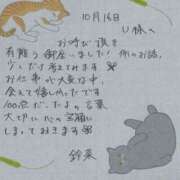 10月16日
U様へ
お呼び頂き
有難う御座いました! 例のお話、
少しだけ考えてみます
お仕事も大変な中、
会えて嬉しかったです
100点だ、だよの言葉
大切に心の宝箱に
しまっておきます
鈴菜